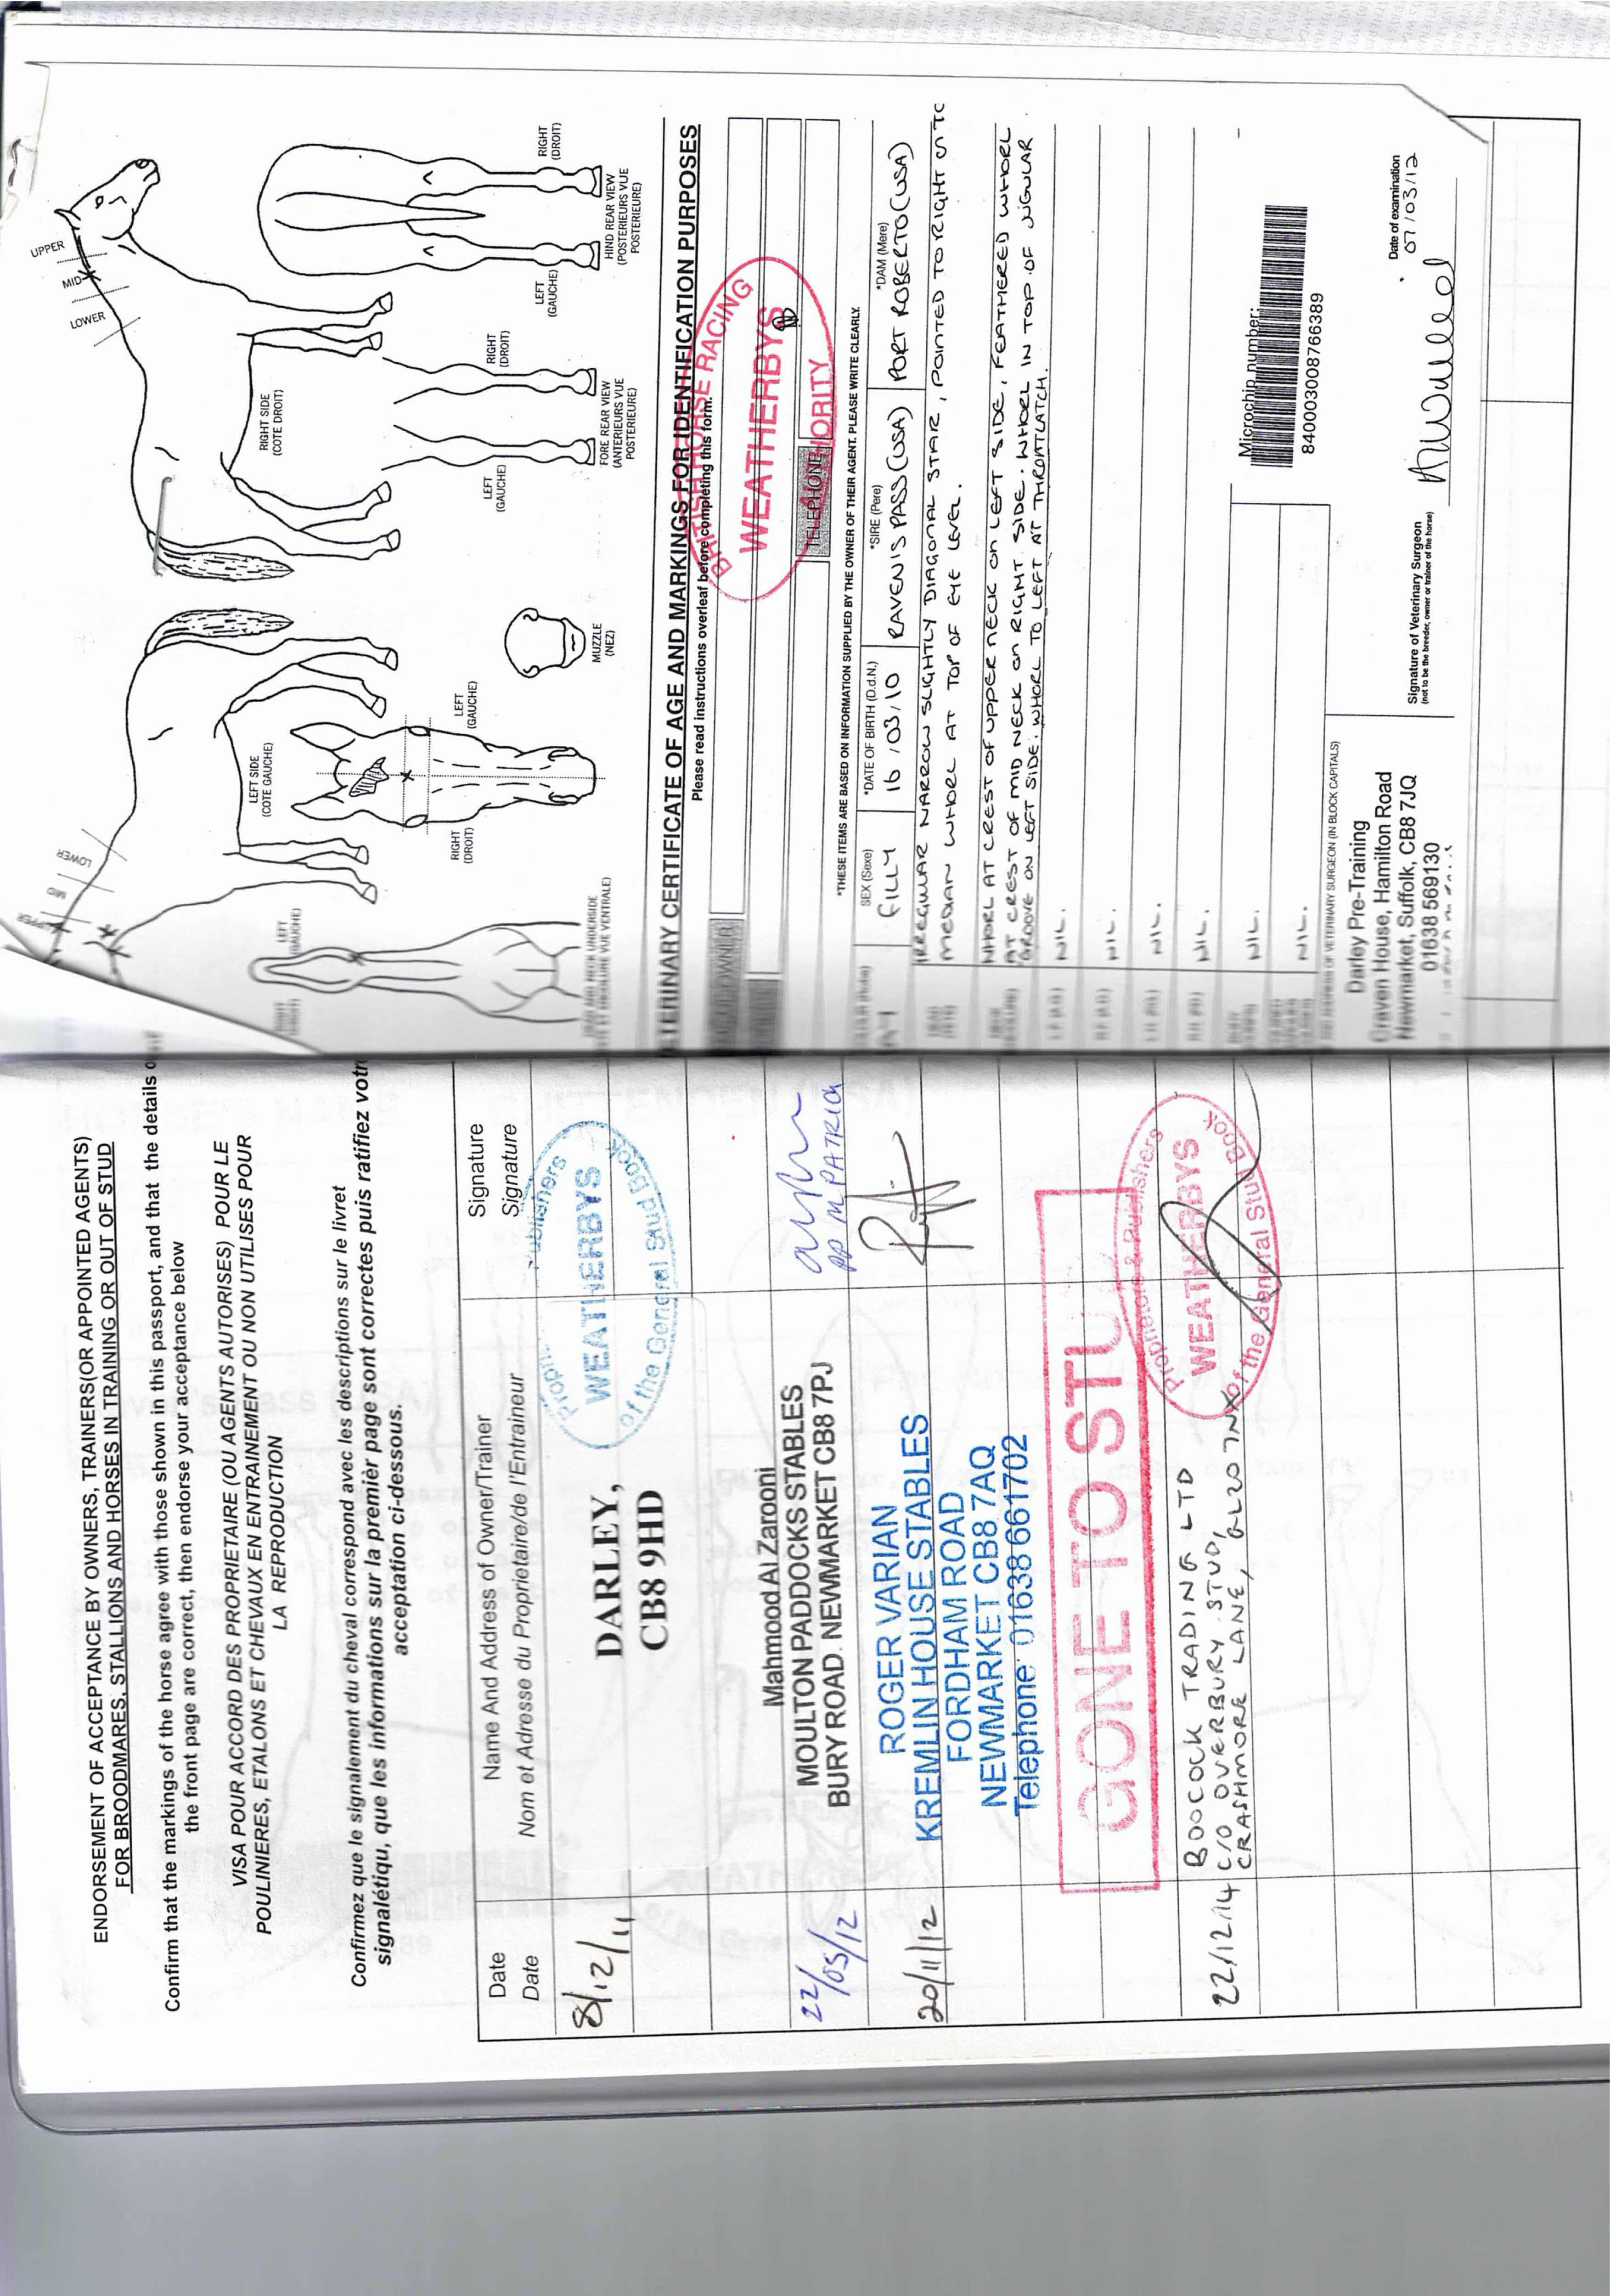 ENDORSEMENT OF ACCEPTANCE BY OWNERS, TRAINERS(OR APPOINTED AGENTS)
FOR BROODMARES, STALLIONS AND HORSES IN TRAINING OR OUT OF STUD
Confirm that the markings of the horse agree with those shown in this passport, and that the details
the front page are correct, then endorse your acceptance below
VISA POUR ACCORD DES PROPRIETAIRE (OU AGENTS AUTORISES) POUR LE
POULINIERES, ETALONS ET CHEVAUX EN ENTRAINEMENT OU NON UTILISES POUR
LA REPRODUCTION
Confirmez que le signalement du cheval correspond avec les descriptions sur le livret
signalétiqu, que les informations sur la premièr page sont correctes puis ratifiez votr
acceptation ci-dessous.
Date Name And Address of Owner/Trainer Signature
Date Nom et Adresse du Proprietaire/de l'Entraineur Signature
8/12/11 DARLEY,
CB8 9HD
Publishers
WEATHERBYS
of the General Stud Book
22/03/12 Mahmood Al Zarooni
MOULTON PADDOCKS STABLES
BURY ROAD. NEWMARKET CB8 7PJ
20/11/12 ROGER VARIAN
KREMLIN HOUSE STABLES
FORDHAM ROAD
NEWMARKET CB8 7AQ
Telephone: 01638 661702
GONE TO STU
Proprietors & Publishers
WEATHERBYS
of the General Stud Book
22/12/14 BOOCOCK TRADING LTD
C/O OVERBURY STUD,
CRASHMORE LANE, GL20 7NX
UPPER
MID
LOWER
LEFT SIDE
(COTE GAUCHE)
RIGHT SIDE
(COTE DROIT)
UPPER
MID
LOWER
LEFT
(GAUCHE)
RIGHT
(DROIT)
LEFT
(GAUCHE)
MUZZLE
(NEZ)
LEFT
(GAUCHE)
RIGHT
(DROIT)
FORE REAR VIEW
(ANTERIEURS VUE
POSTERIEURE)
LEFT
(GAUCHE)
RIGHT
(DROIT)
HIND REAR VIEW
(POSTERIEURS VUE
POSTERIEURE)
TERINARY CERTIFICATE OF AGE AND MARKINGS FOR IDENTIFICATION PURPOSES
Please read instructions overleaf before completing this form.
BRITISH HORSE RACING
WEATHERBYS
AUTHORITY
OWNER
TELEPHONE
*THESE ITEMS ARE BASED ON INFORMATION SUPPLIED BY THE OWNER OF THEIR AGENT. PLEASE WRITE CLEARLY.
SEX (Sexe) *DATE OF BIRTH (D.d.N.) *SIRE (Pere) *DAM (Mere)
FILLY 16/03/10 RAVEN'S PASS (USA) PORT ROBERTO (USA)
IRREGULAR NARROW SLIGHTLY DIAGONAL STAR, POINTED TO RIGHT ON TO
MEDIAN WHORL AT TOP OF EYE LEVEL.
WHORL AT CREST OF UPPER NECK ON LEFT SIDE, FEATHERED WHORL
AT CREST OF MID NECK ON RIGHT SIDE. WHORL IN TOP OF JUGULAR
GROOVE ON LEFT SIDE. WHORL TO LEFT AT THROATLATCH.
NIL.
NIL.
NIL.
NIL.
NIL.
NIL.
Microchip number:
840003008766389
OF VETERINARY SURGEON (IN BLOCK CAPITALS)
Darley Pre-Training
Graven House, Hamilton Road
Newmarket, Suffolk, CB8 7JQ
01638 569130
Signature of Veterinary Surgeon
(not to be the breeder, owner or trainer of the horse)
Date of examination
07/03/12